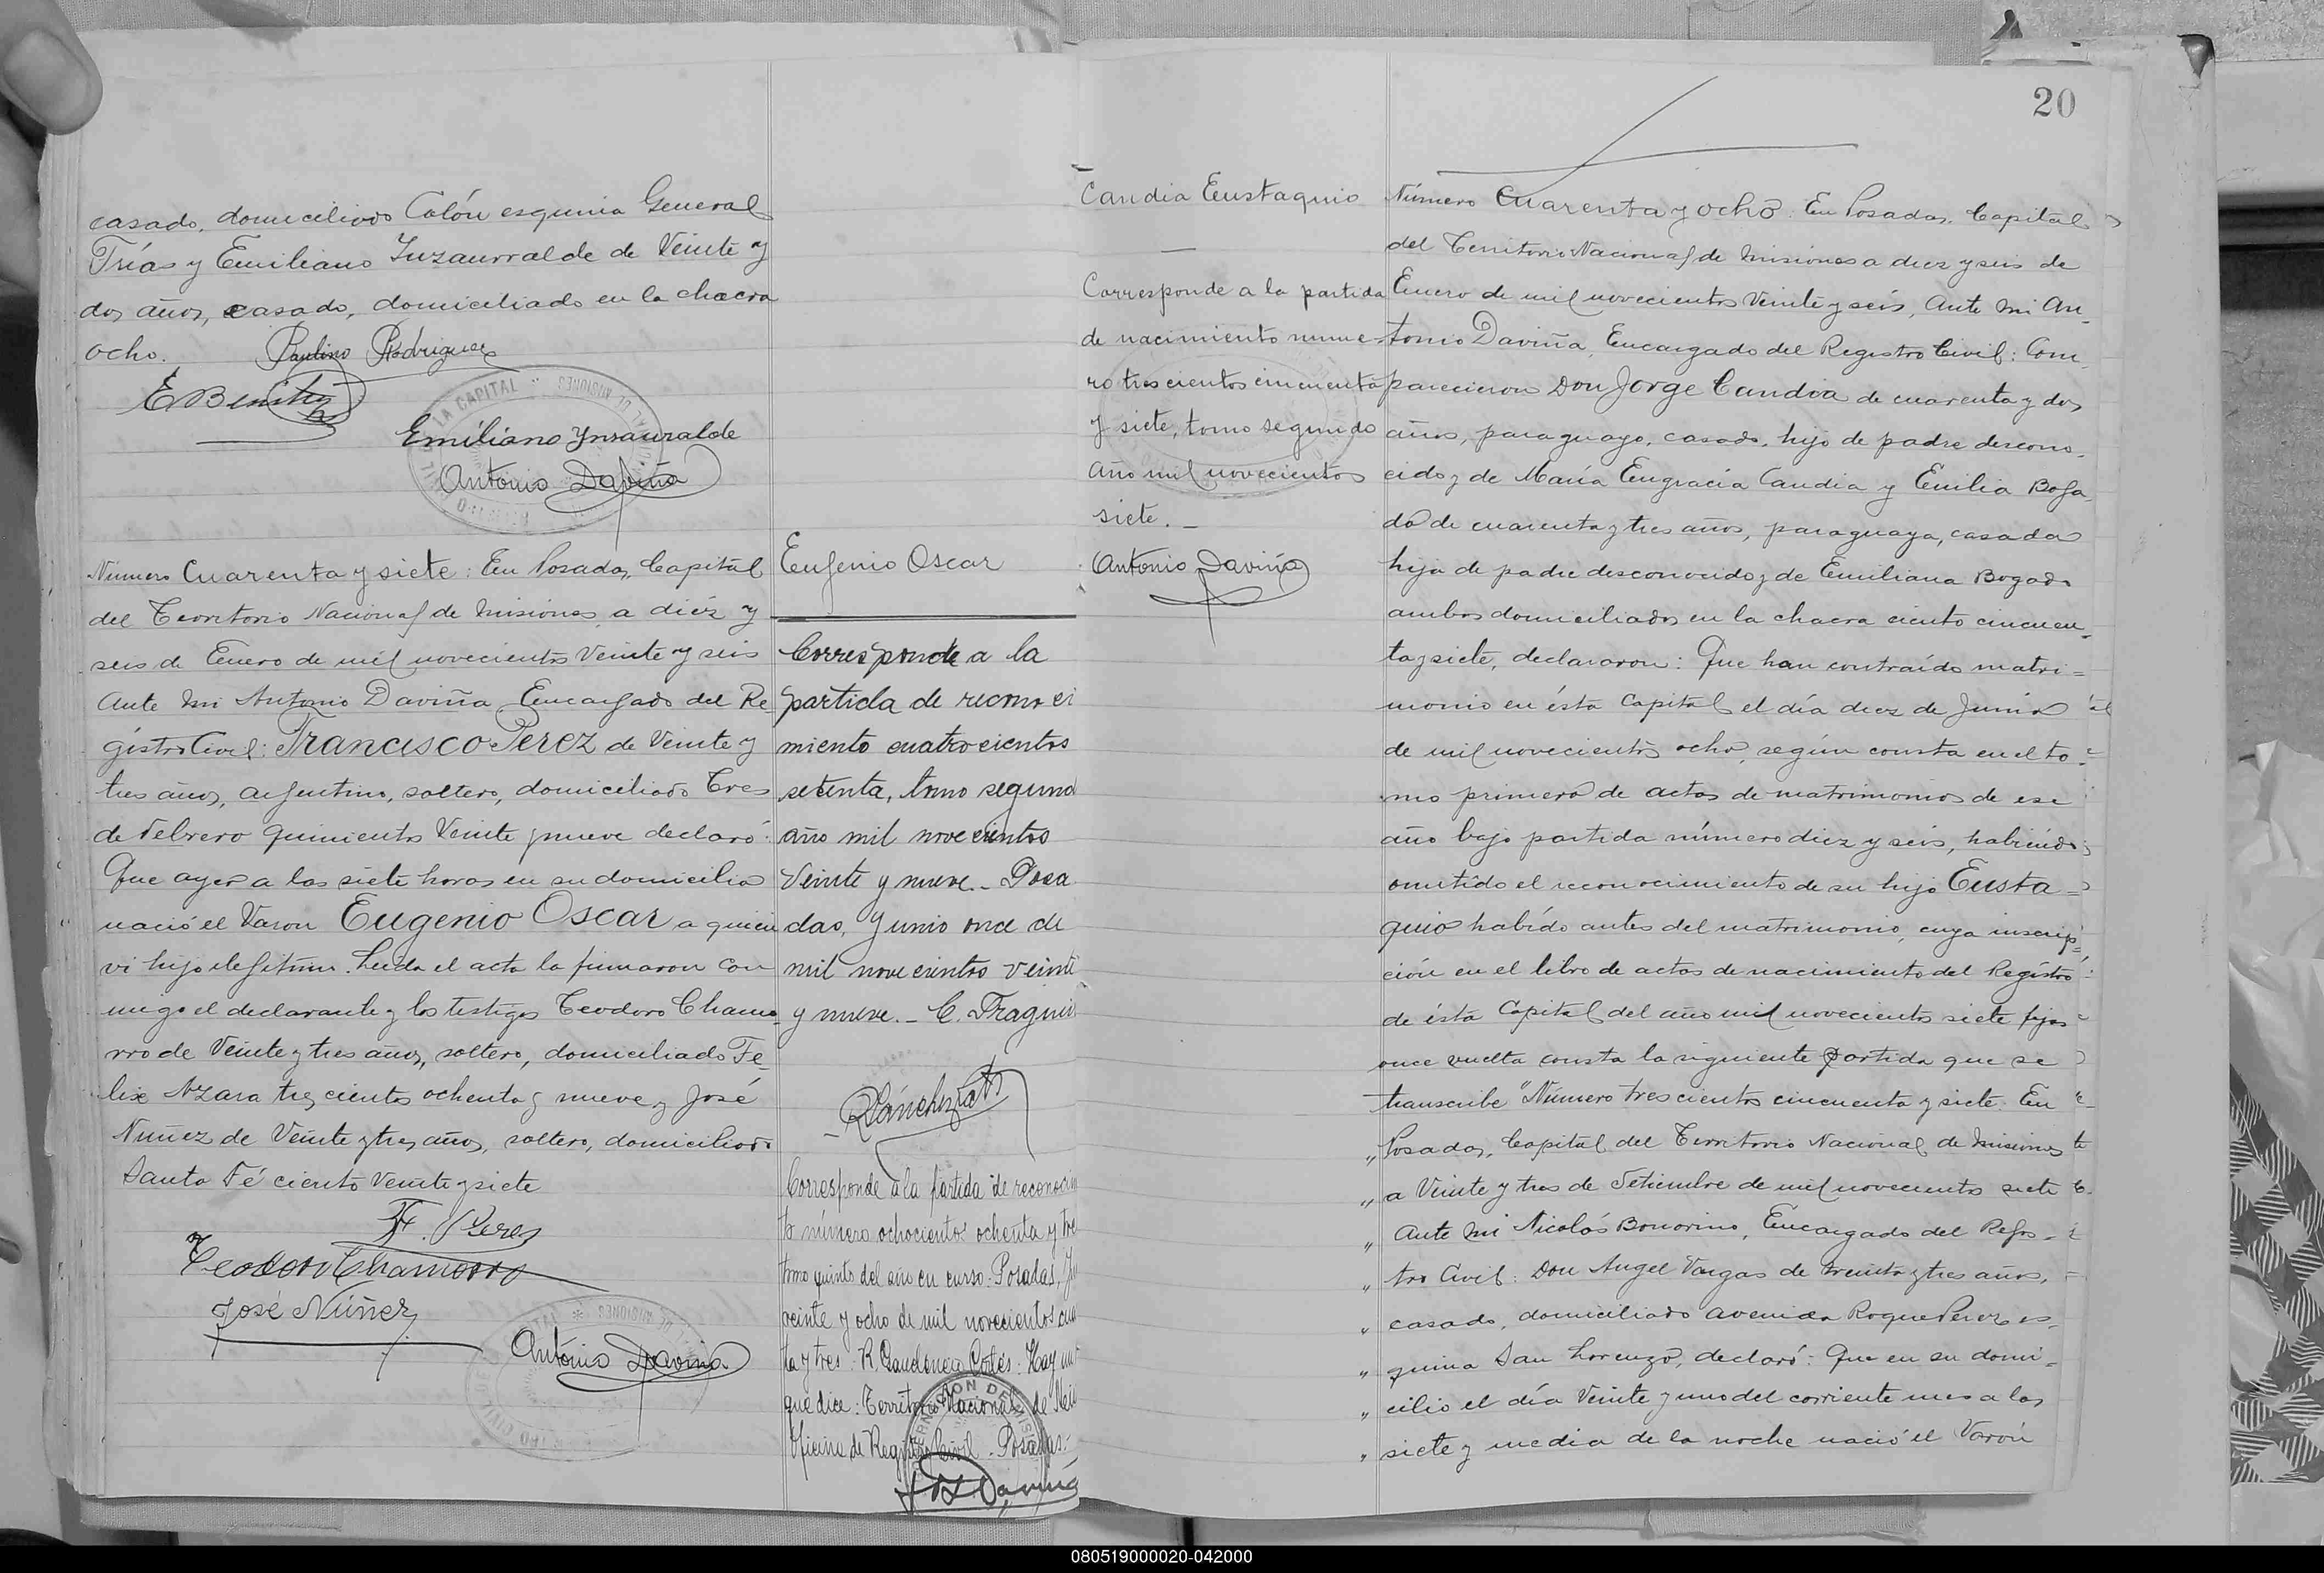 casado, domiciliado Colón esquina General
Frías y Emiliano Inzaurralde de Veinte y
dos años, casado, domiciliado en la chacra
ocho.
Paulino Rodriguez
E Benitez
Emiliano Ynsauralde
Antonio Daviña
Número Cuarenta y siete: En Posadas, Capital
del Territorio Nacional de Misiones a diez y
seis de Enero de mil novecientos Veinte y seis
Ante mi Antonio Daviña Encargado del Re
gistro Civil: Francisco Perez de Veinte y
tres años, argentino, soltero, domiciliado Tres
de Febrero quinientos Veinte y nueve declaró:
Que ayer a las siete horas en su domicilio
nació el Varon Eugenio Oscar a quien
vi hijo ilegítimo. Leída el acta la firmaron con
migo el declarante y los testigos Teodoro Chamo
rro de Veinte y tres años, soltero, domiciliado Fe
lix Azara trescientos ochenta y nueve y José
Nuñez de Veinte y tres años, soltero, domiciliado
Santa Fé ciento Veinte y siete
F. Perez
Teodoro Chamorro
José Núñez
Antonio Daviña
Eugenio Oscar
Corresponde a la
partida de reconoci
miento cuatrocientos
setenta, tomo segundo
año mil novecientos
Veinte y nueve.- Posa
das, Junio once de
mil novecientos veinte
y nueve.- C. Fragui
Corresponde a la partida de reconocim
to número ochocientos ochenta y tre
tomo quinto del año en curso: Posadas,
veinte y ocho de mil novecientos cua
ta y tres: R. Gaudencia Cortés: Hay un
que dice: Territorio Nacional de Mis
Oficina de Registro Civil - Posadas:
Daviña
20
Candia Eustaquio
Corresponde a la partida
de nacimiento núme-
ro trescientos cincuenta
y siete, tomo segundo
año mil novecientos
siete.-
Antonio Daviña
Número Cuarenta y ocho: En Posadas, Capital
del Territorio Nacional de Misiones a diez y seis de
Enero de mil novecientos Veinte y seis, Ante mi An-
tonio Daviña, Encargado del Registro Civil: Com-
parecieron Don Jorge Candia de cuarenta y dos
años, paraguayo, casado, hijo de padre descono-
cido y de María Engracia Candia y Emilia Boga
do de cuarenta y tres años, paraguaya, casada
hija de padre desconocido y de Emiliana Bogado
ambos domiciliados en la chacra ciento cincuen-
ta y siete, declararon: Que han contraído matri=
monio en ésta Capital el día diez de Junio
de mil novecientos ocho, según consta en el to-
mo primero de actas de matrimonios de ese
año bajo partida número diez y seis, habiendo
omitido el reconocimiento de su hijo Eusta=
quio habido antes del matrimonio, cuya inscrip-
ción en el libro de actas de nacimiento del Registro
de ésta Capital del año mil novecientos siete fojas
once vuelta consta la siguiente partida que se
transcribe "Número trescientos cincuenta y siete. En
„ Posadas, Capital del Territorio Nacional de Misiones
„ a Veinte y tres de Setiembre de mil novecientos siete
„ Ante mi Nicolás Bonorino, Encargado del Regis-
„ tro Civil: Don Angel Vargas de treinta y tres años,
„ casado, domiciliado avenida Roque Perez es-
„ quina San Lorenzo, declaró: Que en su domi-
„ cilio el día Veinte y uno del corriente mes a las
„ siete y media de la noche nació el Varón
080519000020-042000